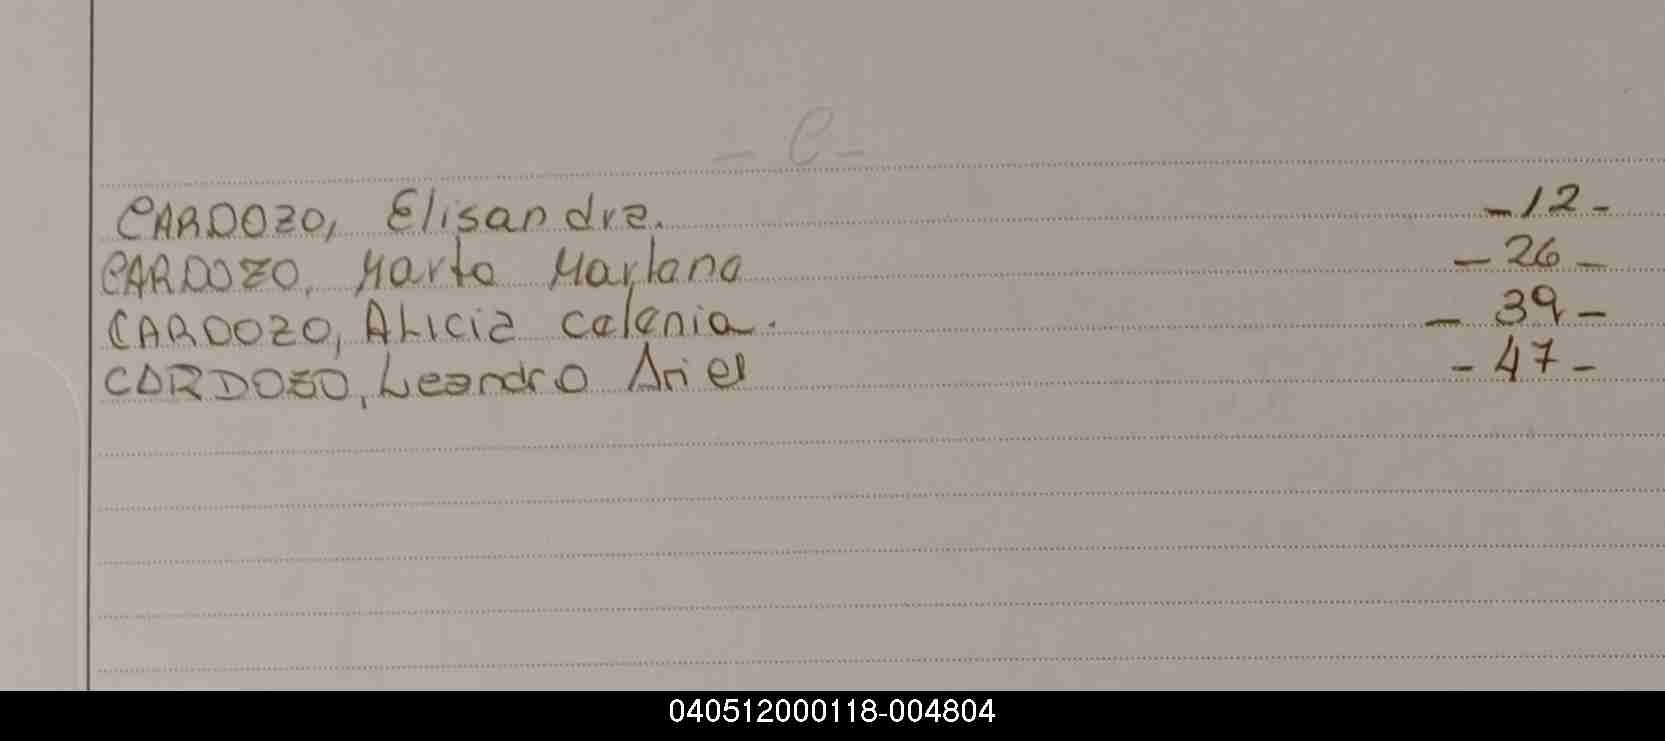 - C -
CARDOZO, Elisandra. -12-
CARDOZO, Marta Marlana -26-
CARDOZO, Alicia Celenia. - 39 -
CARDOZO, Leandro Ariel - 47 -
040512000118-004804